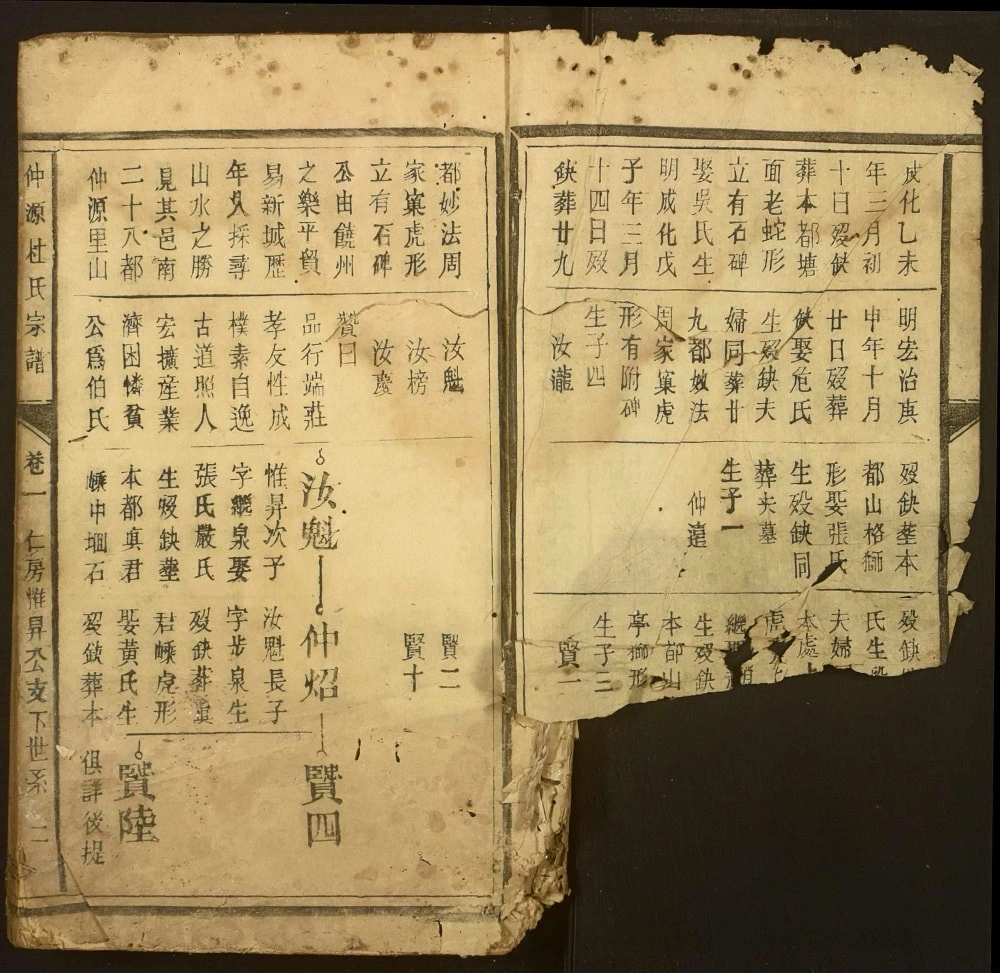 成化乙未
年三月初
十日歿缺
葬本都塘
面老蛇形
立有石碑
娶吳氏生
明成化戊
子年三月
十四日歿
缺葬廿九
明宏治庚
申年十月
廿日歿葬
缺娶危氏
生歿缺夫
婦同葬廿
九都妙法
周家窠虎
形有附碑
生子四
汝瀧
歿缺塟本
都山格獅
形娶張氏
生歿缺同
葬夫墓
生子一
仲遠
歿缺
氏生
夫婦
本處
虎
繼
生歿缺
本都山
亭獅形
生子三
賢一
都妙法周
家窠虎形
立有石碑
公由饒州
之樂平貿
易新城歷
年久採尋
山水之勝
見其邑南
二十八都
仲源里山
汝魁
汝榜
汝慶
贊曰
品行端莊
孝友性成
樸素自逸
古道照人
宏擴産業
濟困憐貧
公爲伯氏
汝魁
惟昇次子
字繼泉娶
張氏嚴氏
生歿缺塟
本都真君
嵊中堌石
賢二
賢十
仲炤
汝魁長子
字步泉生
歿缺葬真
君嵊虎形
娶黃氏生
歿缺葬本
賢四
賢陸
俱詳後提
仲源杜氏宗譜
卷一
仁房惟昇公支下世系
二